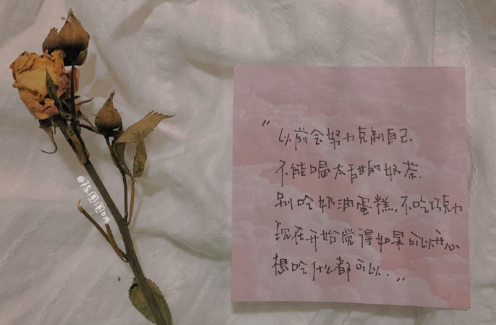 “以前会努力克制自己
不能喝太甜的奶茶.
别吃奶油蛋糕,不吃巧克力
现在开始觉得如果可以开心
想吃什么都可以..„